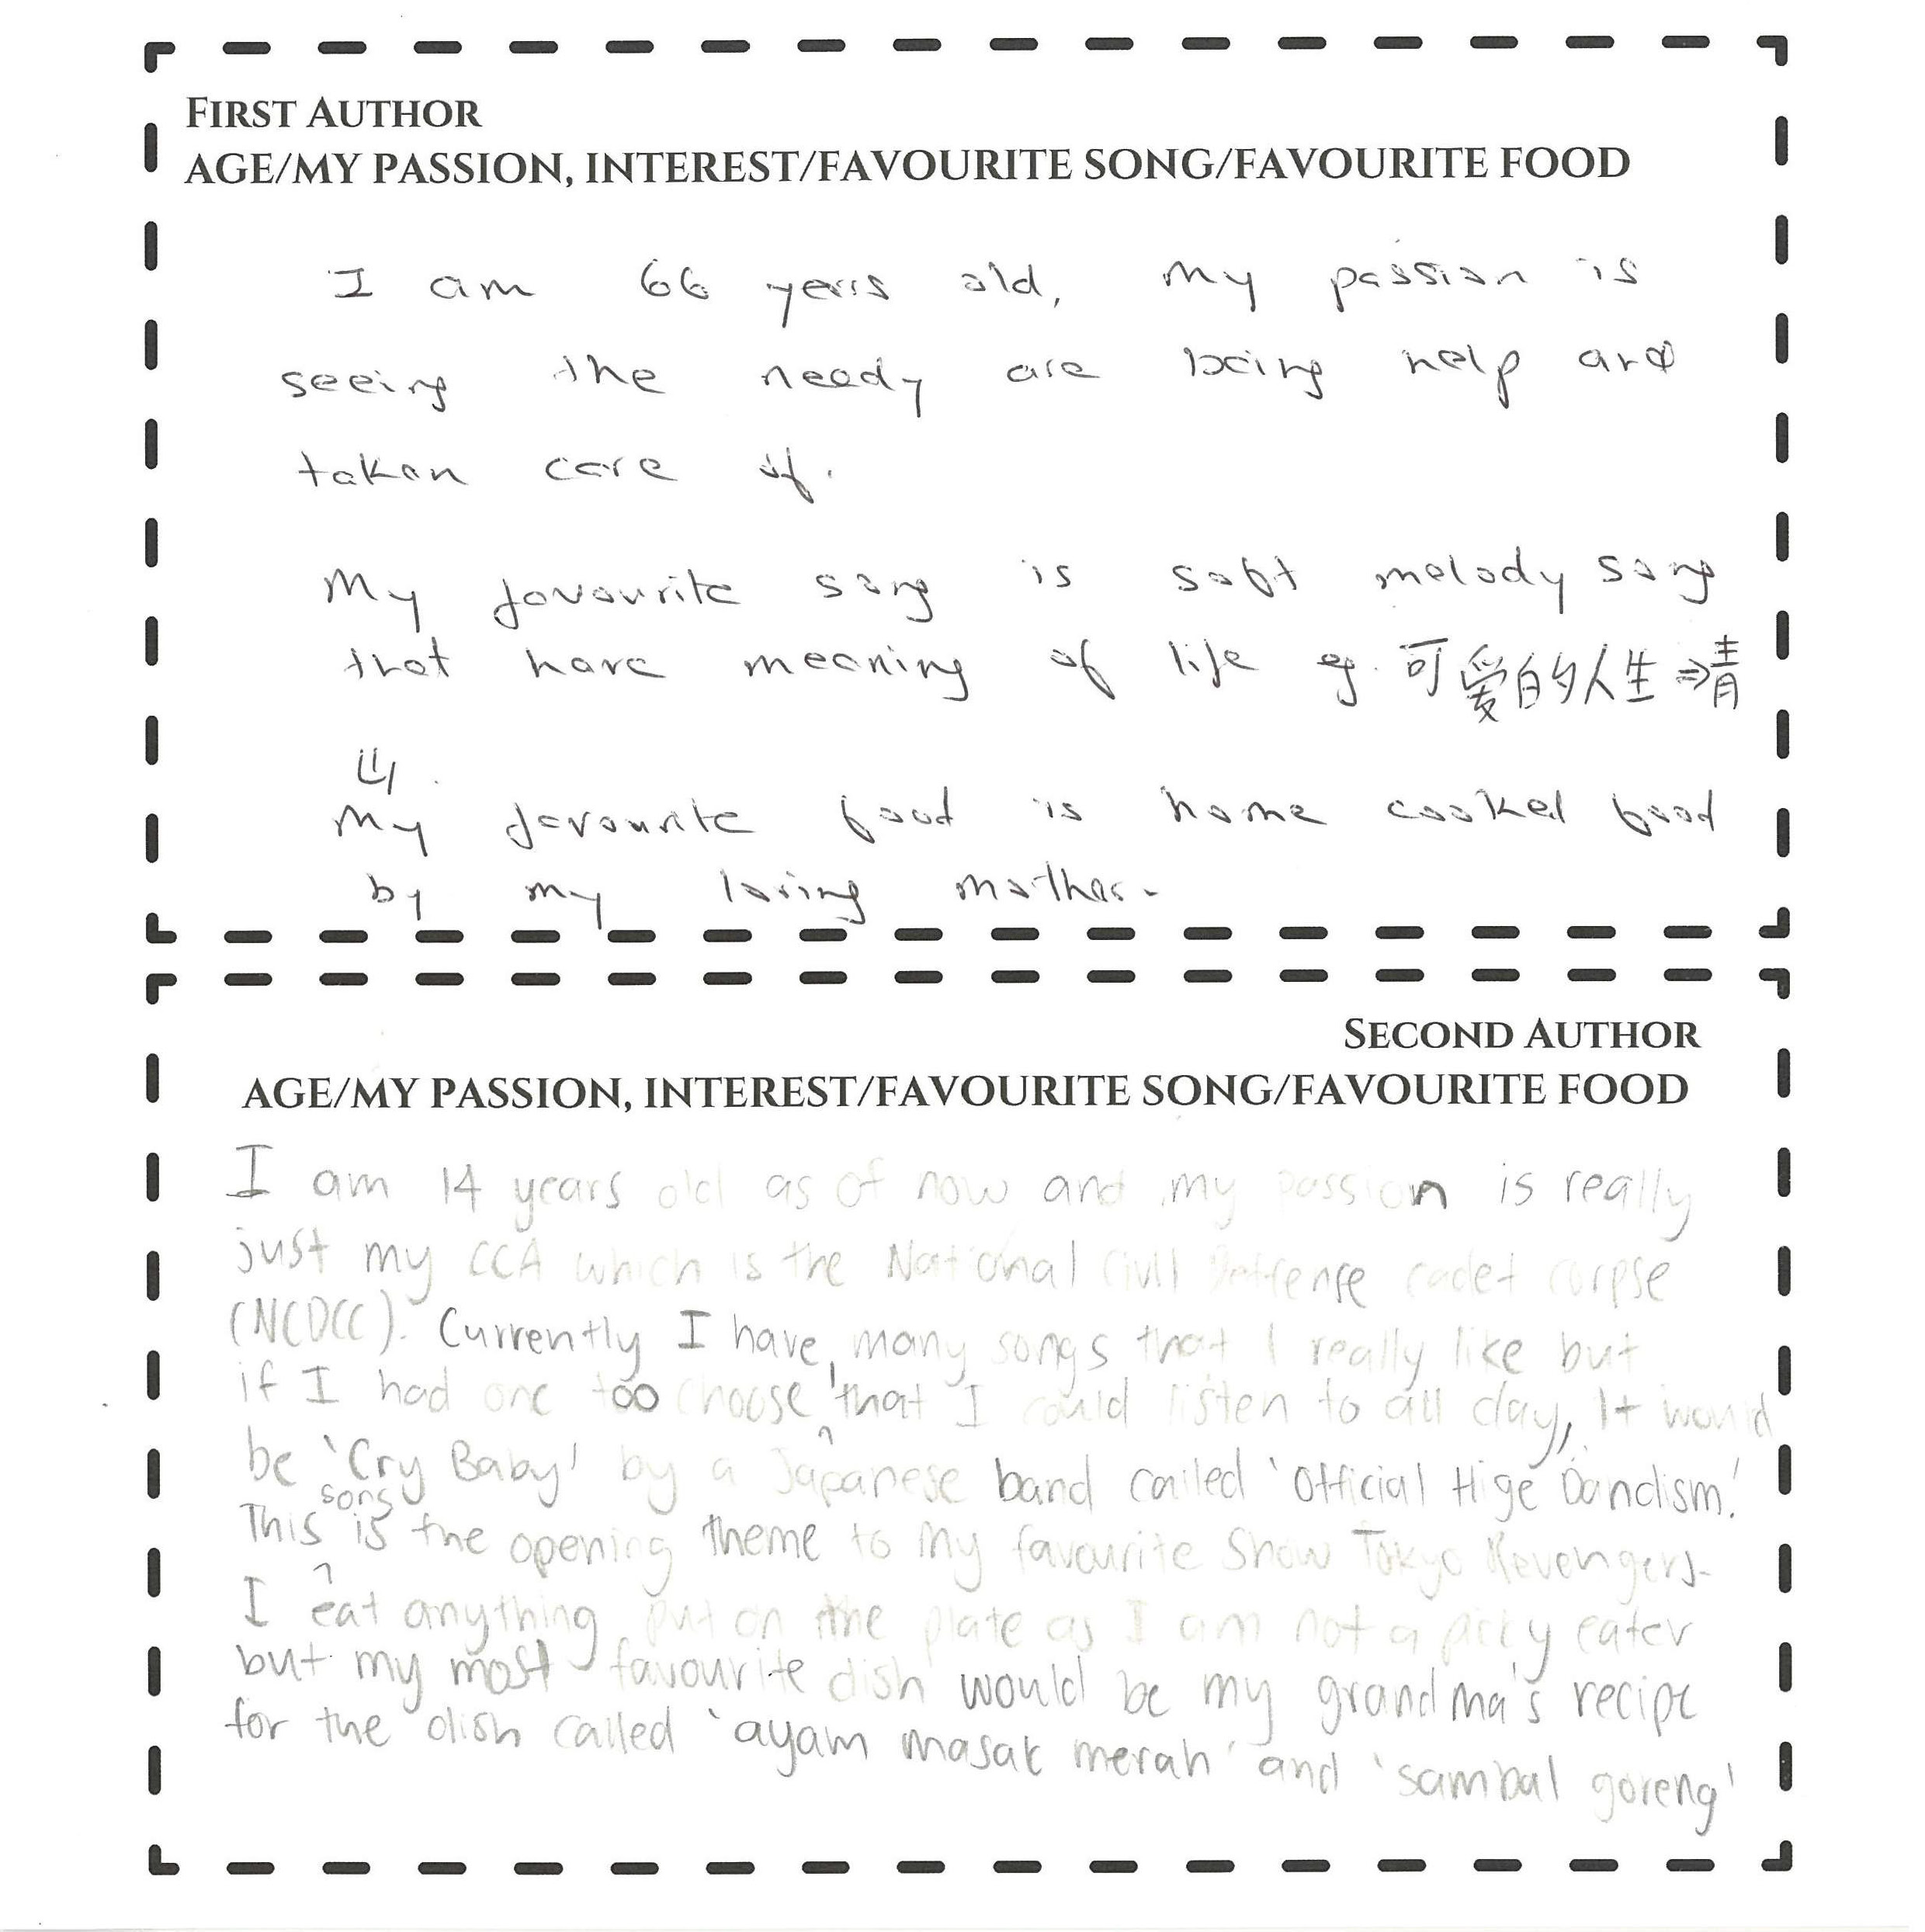 FIRST AUTHOR
AGE/MY PASSION, INTEREST/FAVOURITE SONG/FAVOURITE FOOD
I am 66 years old, My passion is
seeing the needy are being help and
taken care of.
My favourite song is soft melody song
that have meaning of life eg. 可爱的人生 ⇒ 青
山.
My favourite food is home cooked food
by my loving mother.
SECOND AUTHOR
AGE/MY PASSION, INTEREST/FAVOURITE SONG/FAVOURITE FOOD
I am 14 years old as of now and my passion is really
just my CCA which is the National Civil Deffense cadet corpse
(NCDCC). Currently I have, many songs that I really like but
if I had one too choose that I could listen to all day, It would
be 'Cry Baby' by a Japanese band called 'Official Hige Dandism'.
This song is the opening theme to my favourite Show Tokyo Revengers.
I eat anything put on the plate as I am not a picky eater
but my most favourite dish would be my grandma's recipe
for the dish called 'ayam masak merah' and 'sambal goreng'